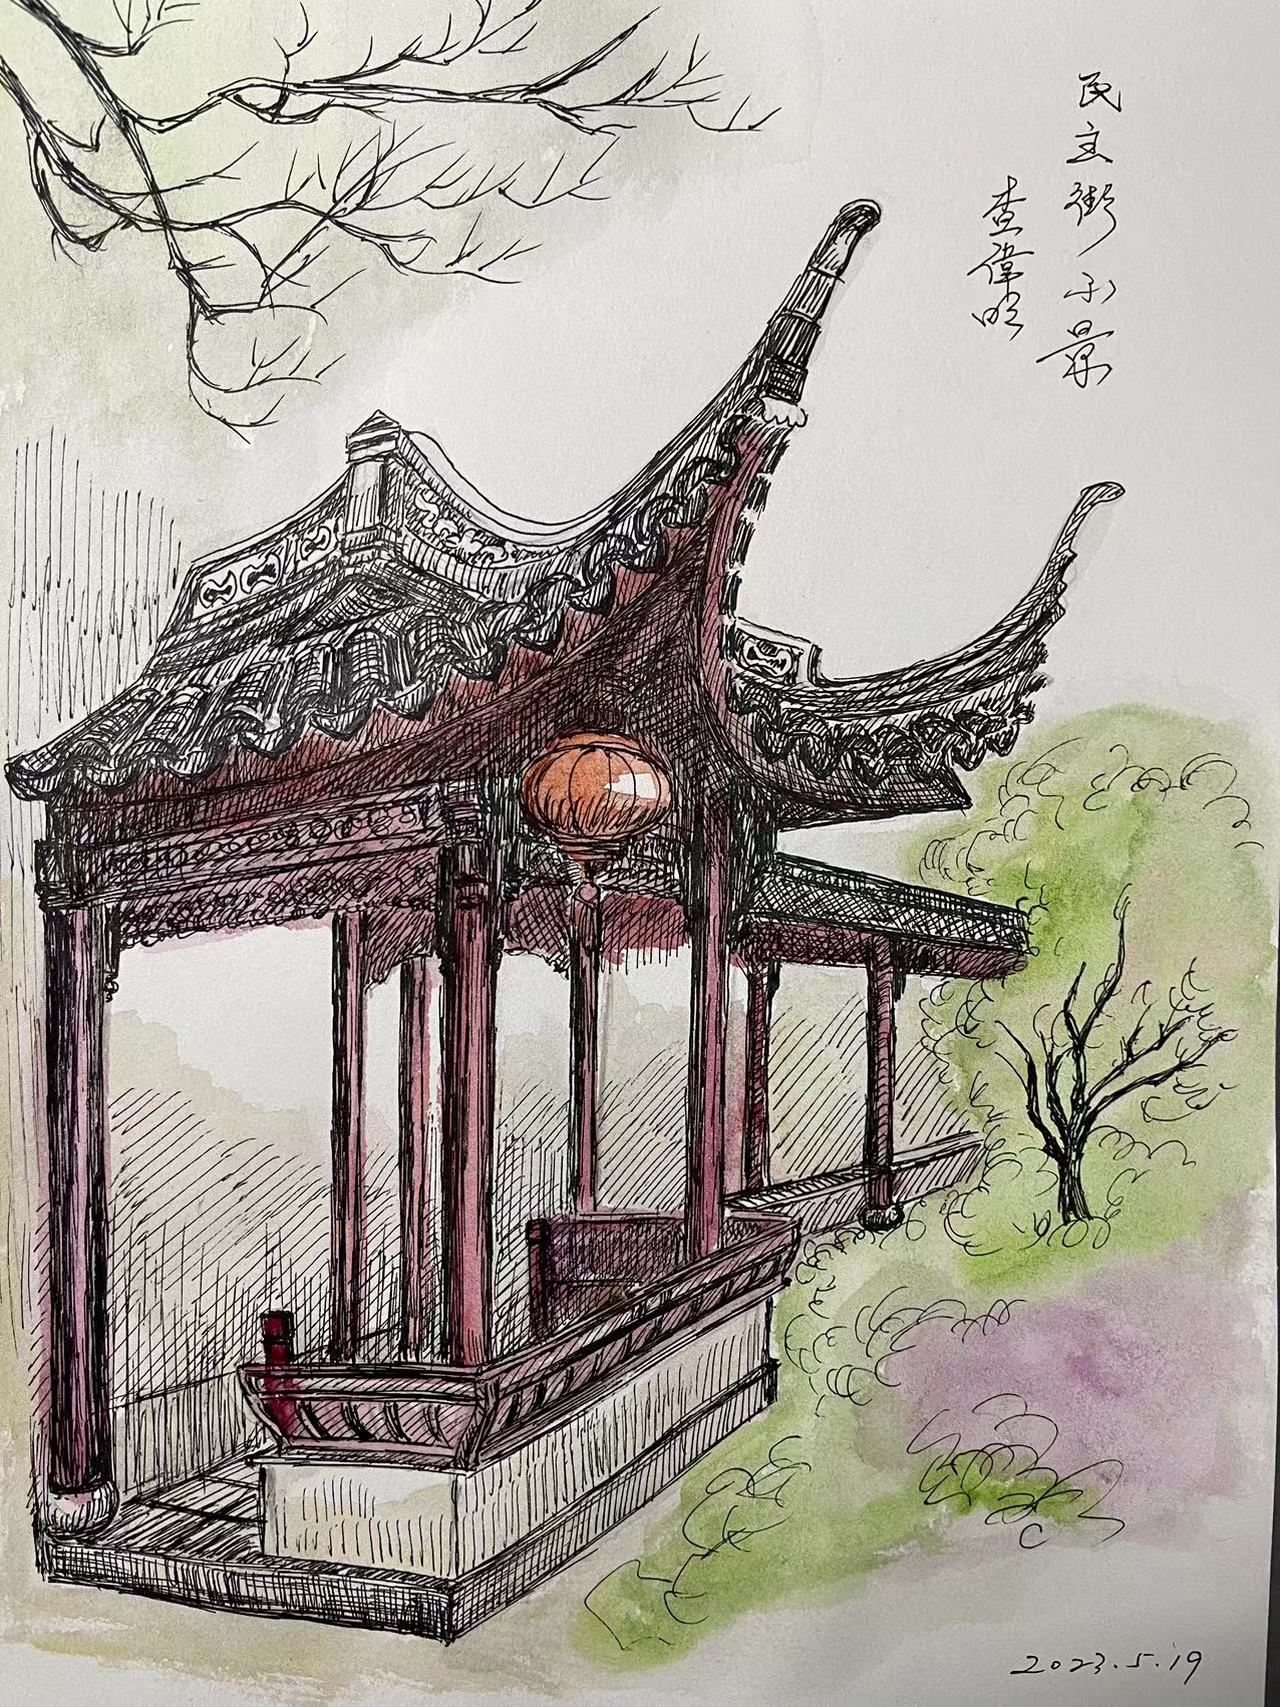 民主街小景
查偉明
2023.5.19